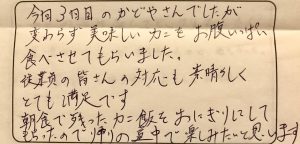 今回3回目のかどやさんでしたが
変わらず美味しいカニをお腹いっぱい
食べさせてもらいました。
従業員の皆さんの対応も素晴らしく
とても満足です
朝食で残ったカニ飯をおにぎりにして
もらったので帰りの車中で楽しみたいと思います